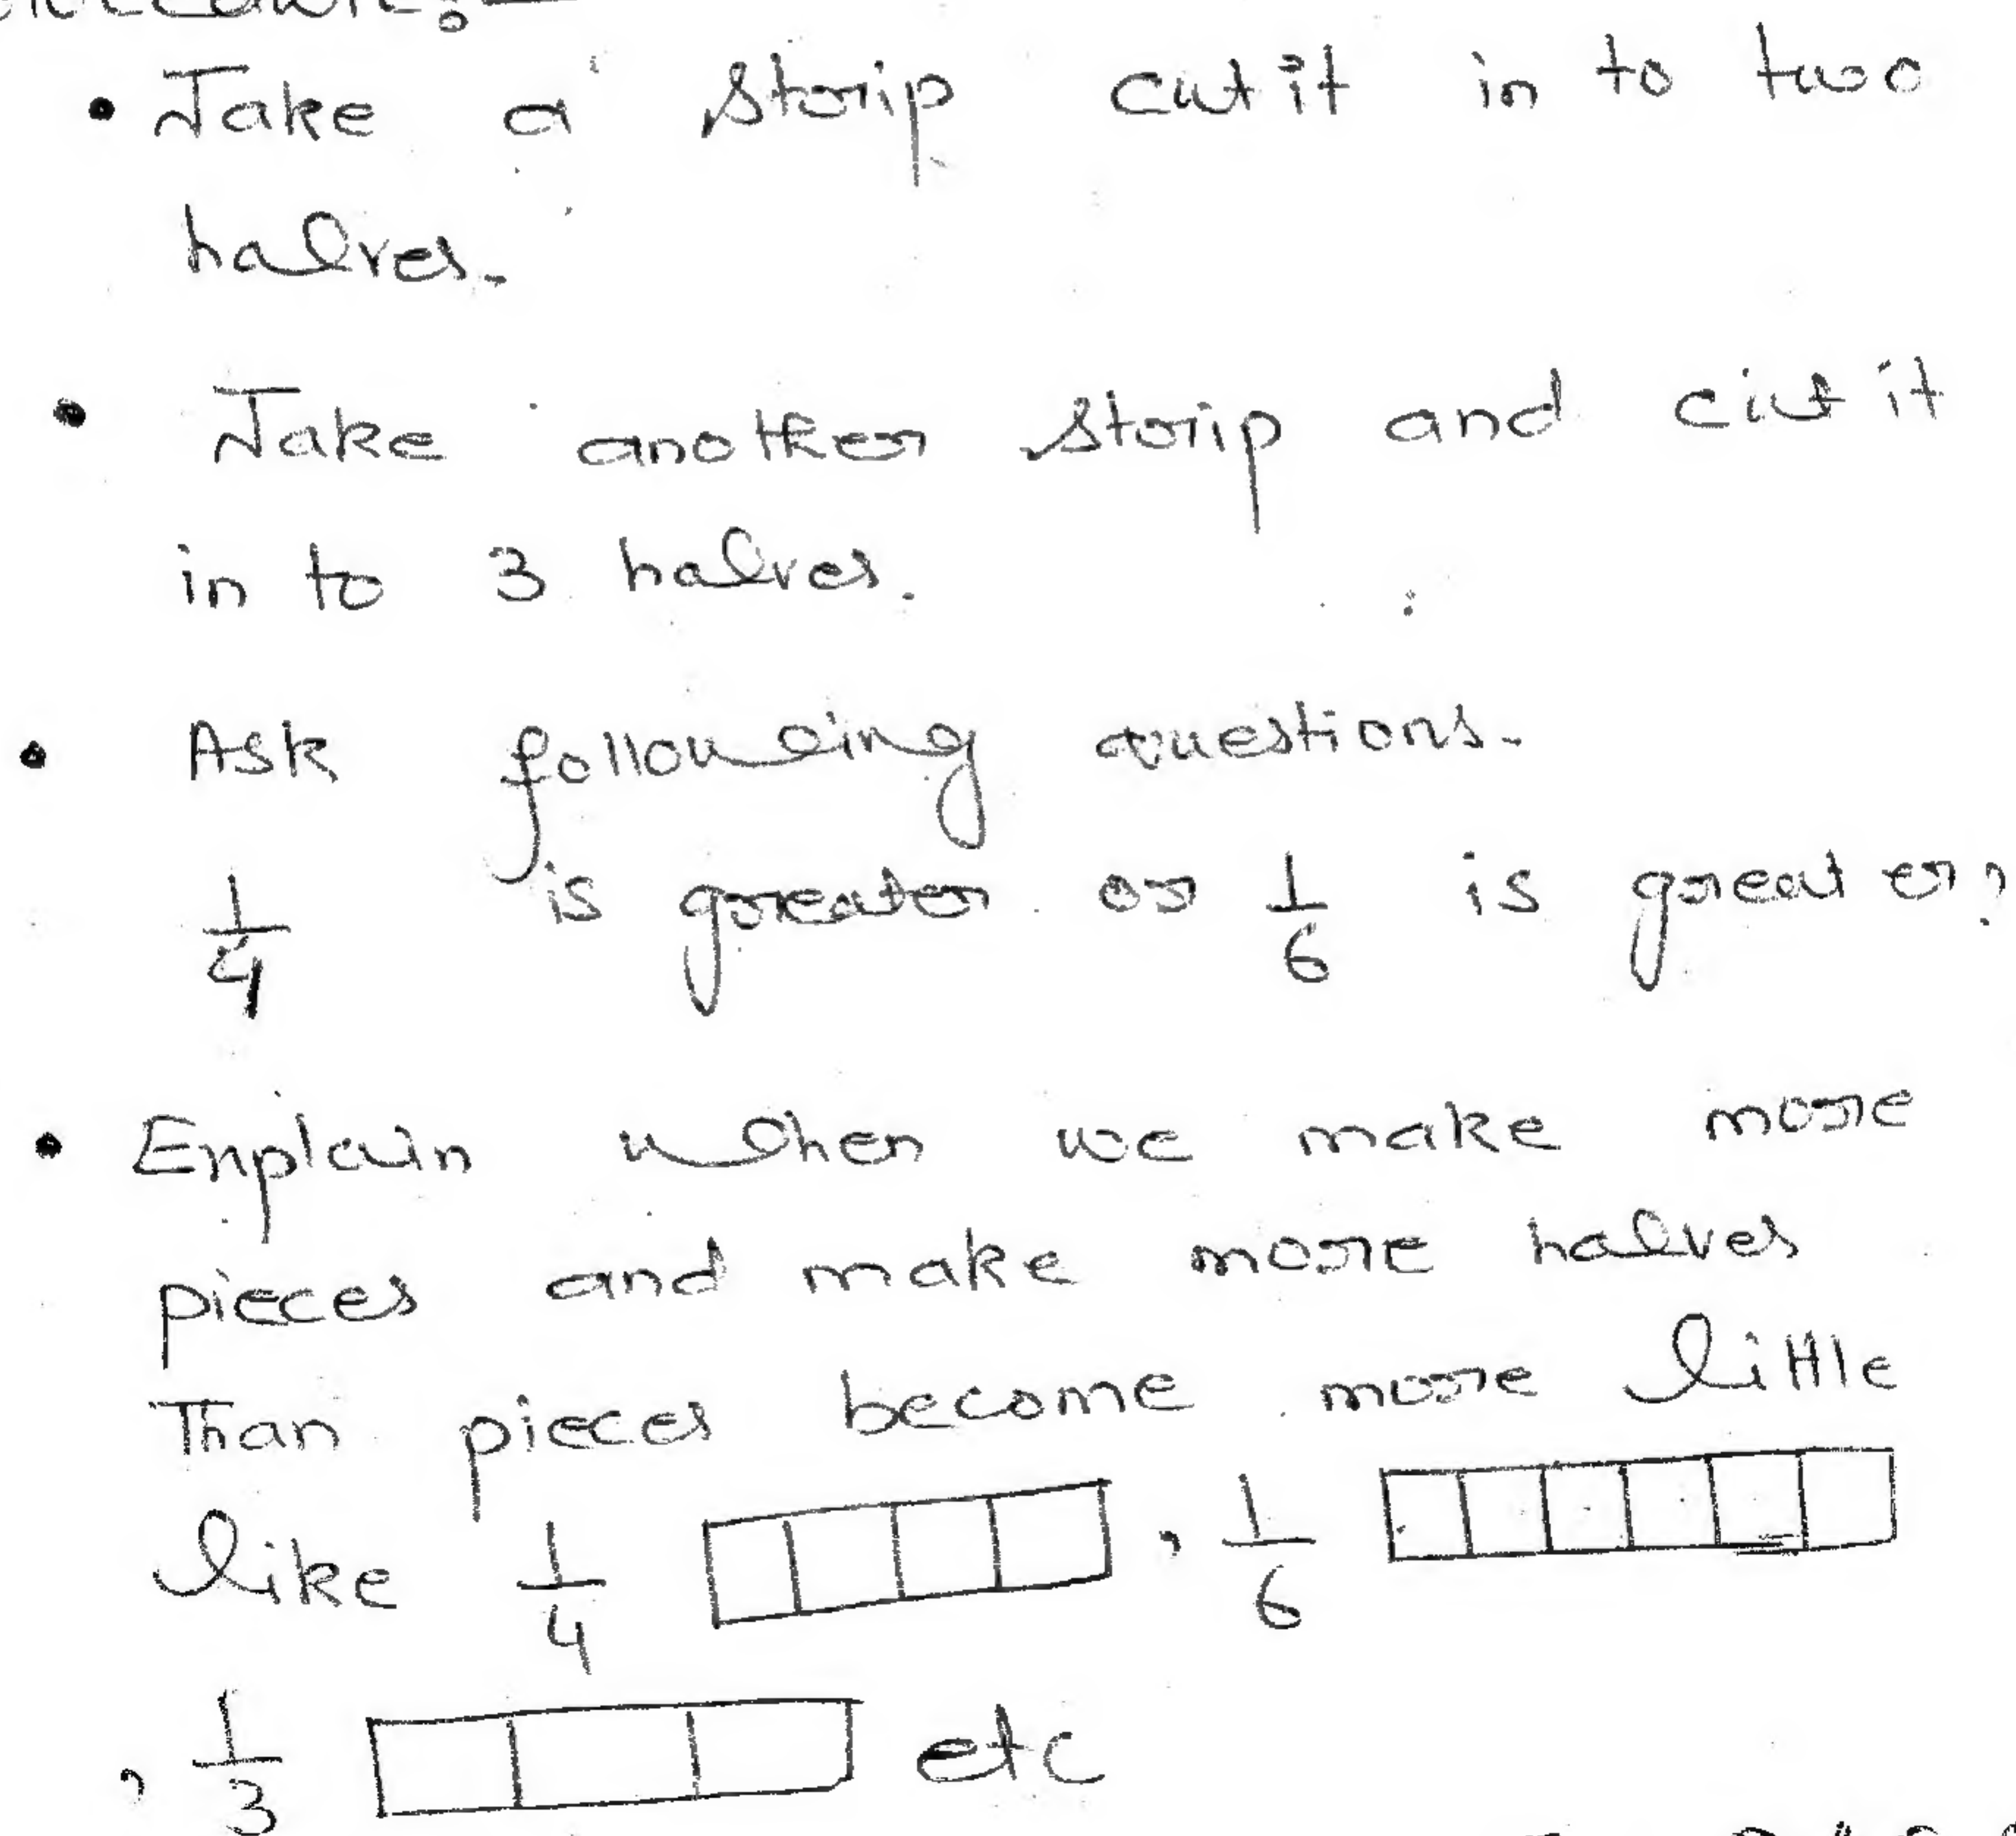 • Take a strip cut it in to two
halves.
• Take another strip and cut it
in to 3 halves.
• Ask following questions.
1/4 is greater or 1/6 is greater?
• Enplain when we make more
pieces and make more halves
Than pieces become more little
like 1/4 , 1/6
, 1/3 etc